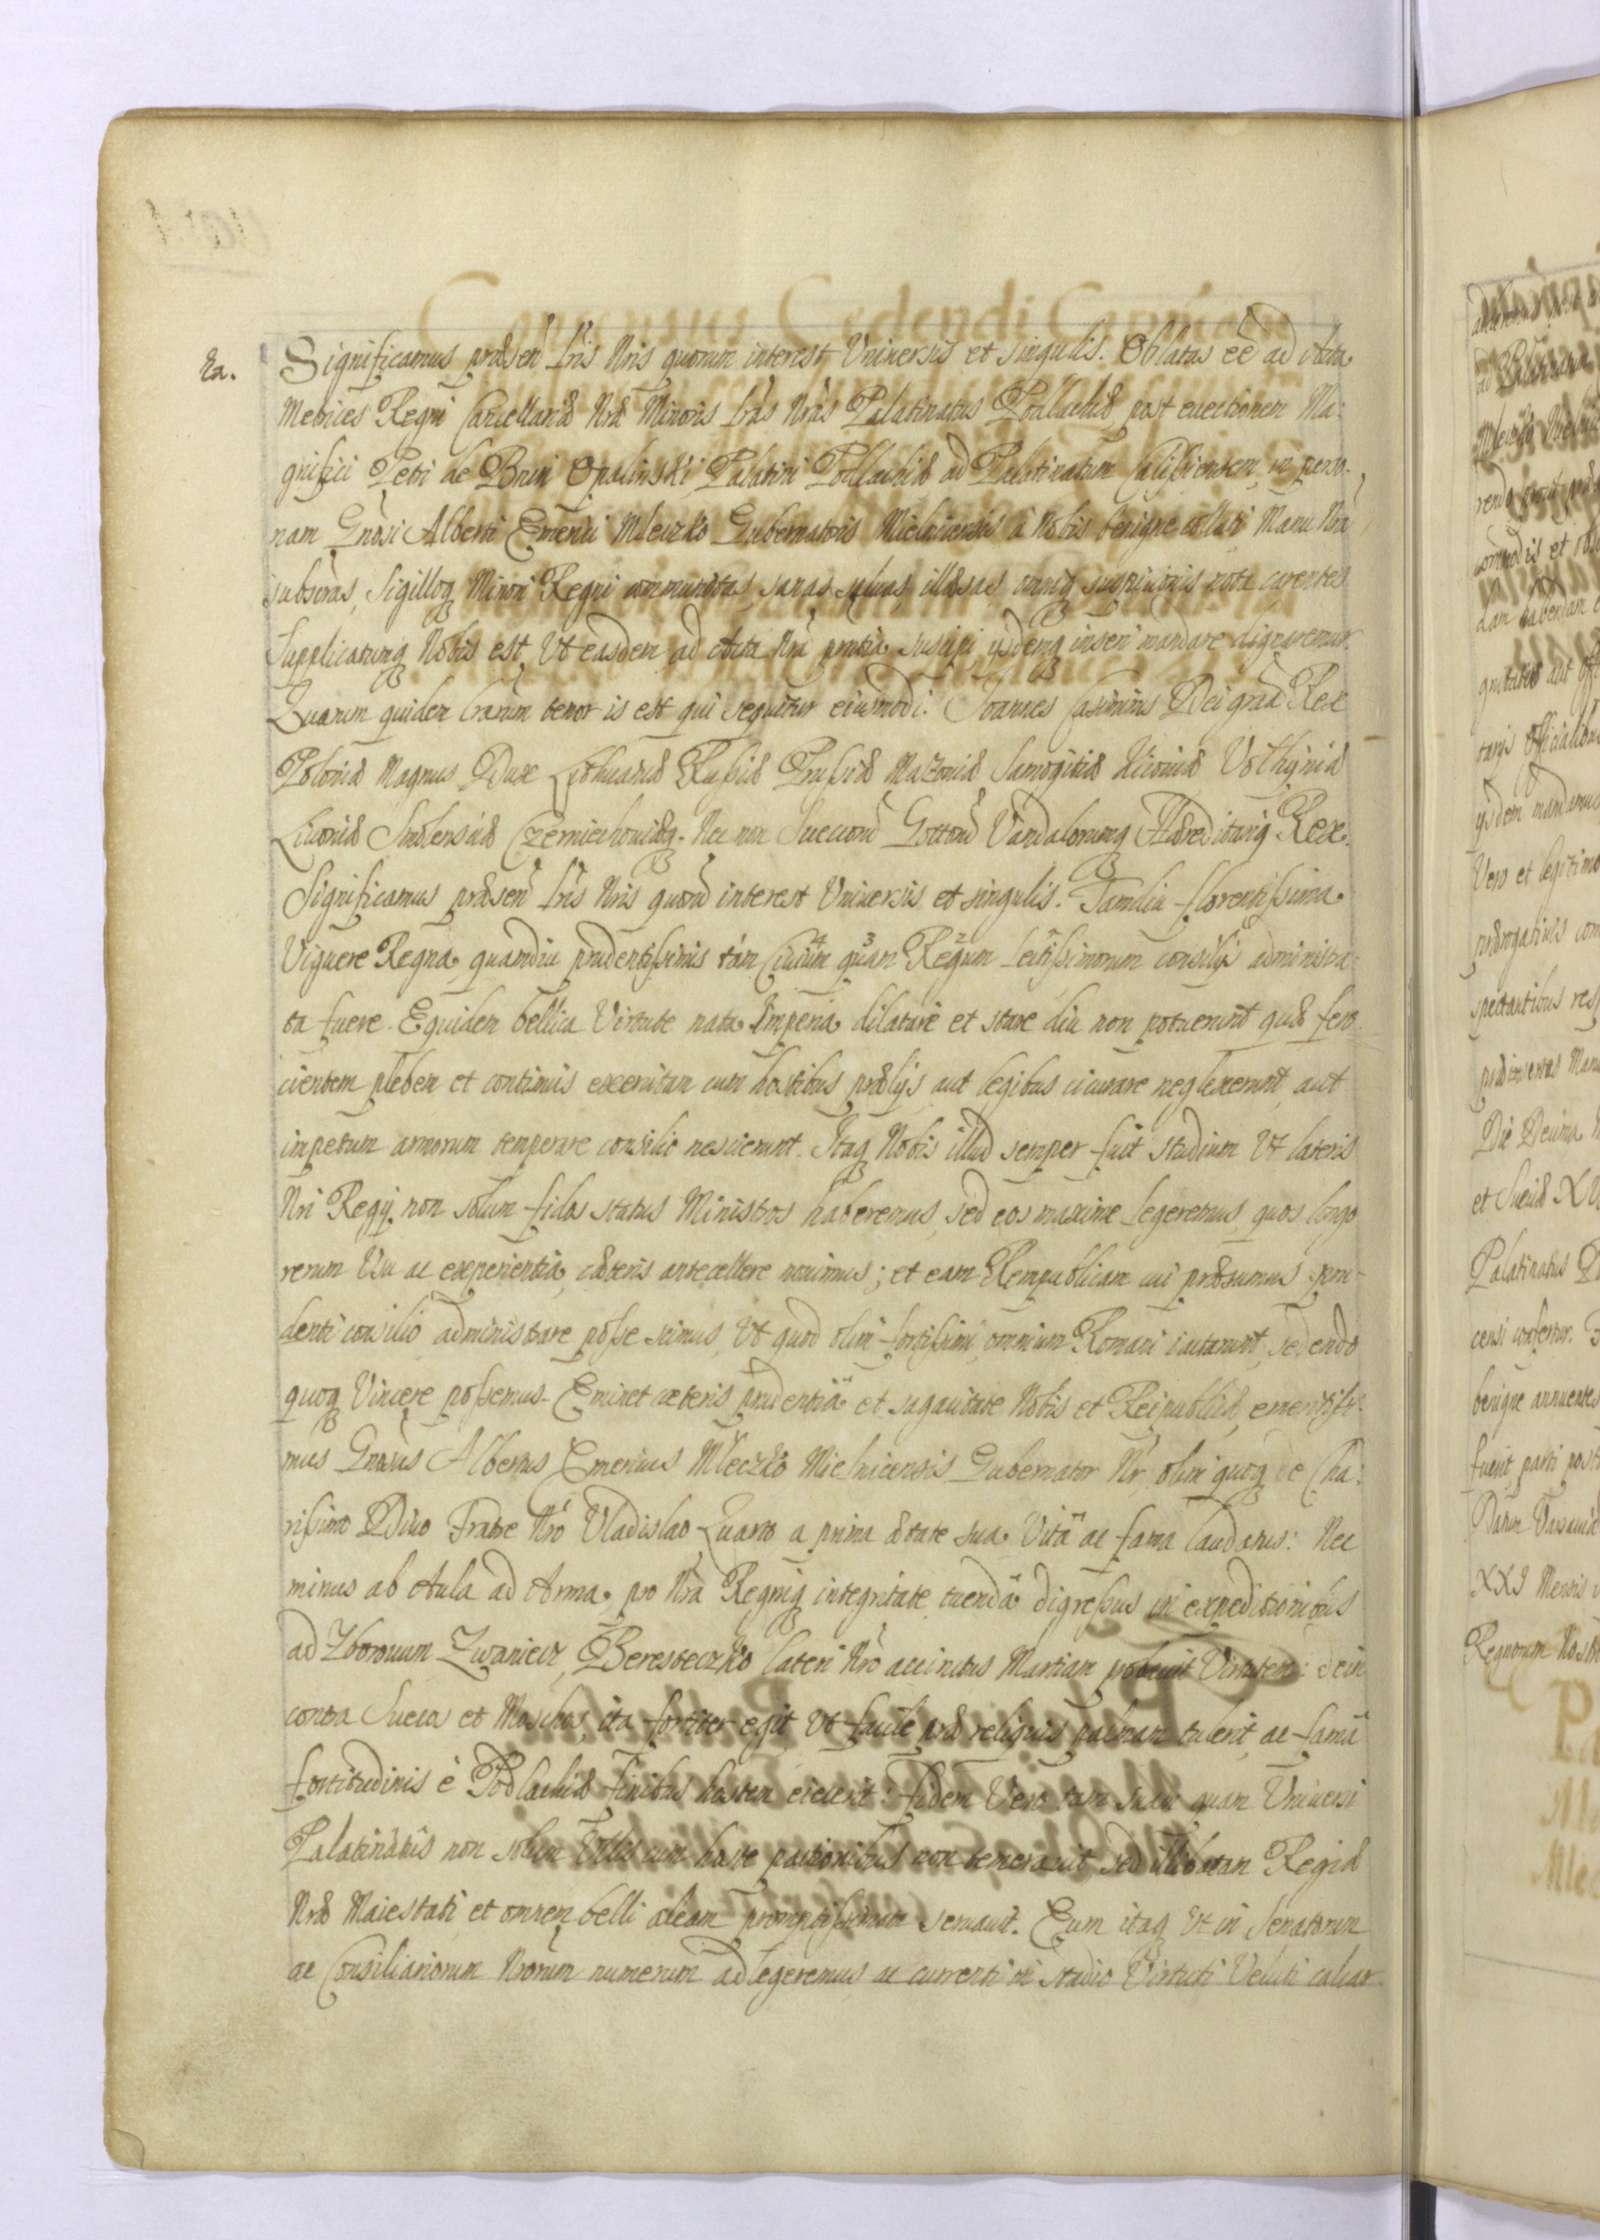 Ra.
Significamus præsen̄ Lris Nris quorum interest Vniversis et singulis. Oblatas eē ad Acta
Metrices Regni Cancellariæ Nræ Minoris Lras Nras Palatinatus Podlachiæ, post euectionem Ma:
gnifici Petri de Bnin Opalinski Palatini Podlachiæ ad Palatinatum Calissiensem, in perso-
nam Gnosi Alberti Emerici Mleczko Gubernatoris Mielnicensis à Nobis benigne collati Manu Nra
subscras, Sigilloq Minori Regni communitas, sanas saluas, illæsas omniq suspicionis nota carentes
Supplicatumq Nobis est, Vt easdem ad Acta Nra pntia suscipi ijsdemq inseri mandare dignaremur.
Quarum quidem Lrarum tenor is est qui sequitur eiusmodi. Joannes Casimirus Dei gra Rex
Poloniæ Magnus Dux Lithuaniæ Russiæ Prussiæ Mazouiæ Samogitiæ Kiiouiæ Volhyniæ
Liuoniæ Smolensciæ Czerniechouiæq. Nec non Suecorū Gottorū Vandalorumq Hæreditariq Rex.
Significamus præsen̄ Lris Nris quorū interest Vniversis et singulis. Tamdiu florentissima
Viguere Regna, quamdiu prudentissimis tàm Ciuium 4 quam 3 Regum 2 lectissimorum consilijs administra-
ta fuere. Equidem bellica Virtute nata Imperia dilatare et stare diu non potuerunt quæ fero-
cientem plebem et continuis exercitam cum hostibus prælijs aut legibus cicurare neglexerunt, aut
impetum armorum temperare consilio nescierunt. Itaq Nobis illud semper fuit studium Vt lateris
Nri Regij non solum fidos status Ministros haberemus, sed eos maxime legeremus, quos longo
rerum Vsu ac experientia, cæteris antecellere nouimus; et eam Rempublicam cui præsumus, pru-
denti consilio administrare posse scimus, Vt quod olim fortissimi omnium Romani iactarunt, sedendo
quoq Vincere possemus. Eminet cæteris prudentiâ et sagacitate Nobis et Reipublicæ, emeritissi-
mus Gnosus Albertus Emericus Mleczko Mielnicensis Gubernator Nr, olim quoq de Cha:
rissimo Diuo Fratre Nro Vladislao Quarto a prima ætate sua Vitâ ac fama laudatus: Nec
minus ab Aula ad Arma, pro Nra Regniq integritate tuendâ digressus in expeditionibus
ad Zborouum Zwaniecz, Beresteczko lateri Nro accinctus Martiam probauit Virtutem: dein
contra Suecos et Moschos, ita fortiter egit Vt facile præ reliquis palmam tulerit, ac famâ
fortitudinis è Podlachiæ finibus hostem eiecerit: fidem Vero tam suam quam Vniuersi
Palatinatus non solum Vllis cum hoste pactionibus non temerauit, sed illibatam Regiæ
Nræ Maiestati et omnem belli aleam promptissimam seruauit. Eum itaq Vt in Senatorum
ac Consiliariorum Nrorum numerum adlegeremus ac currenti in stadio Virtuti Veluti calcar